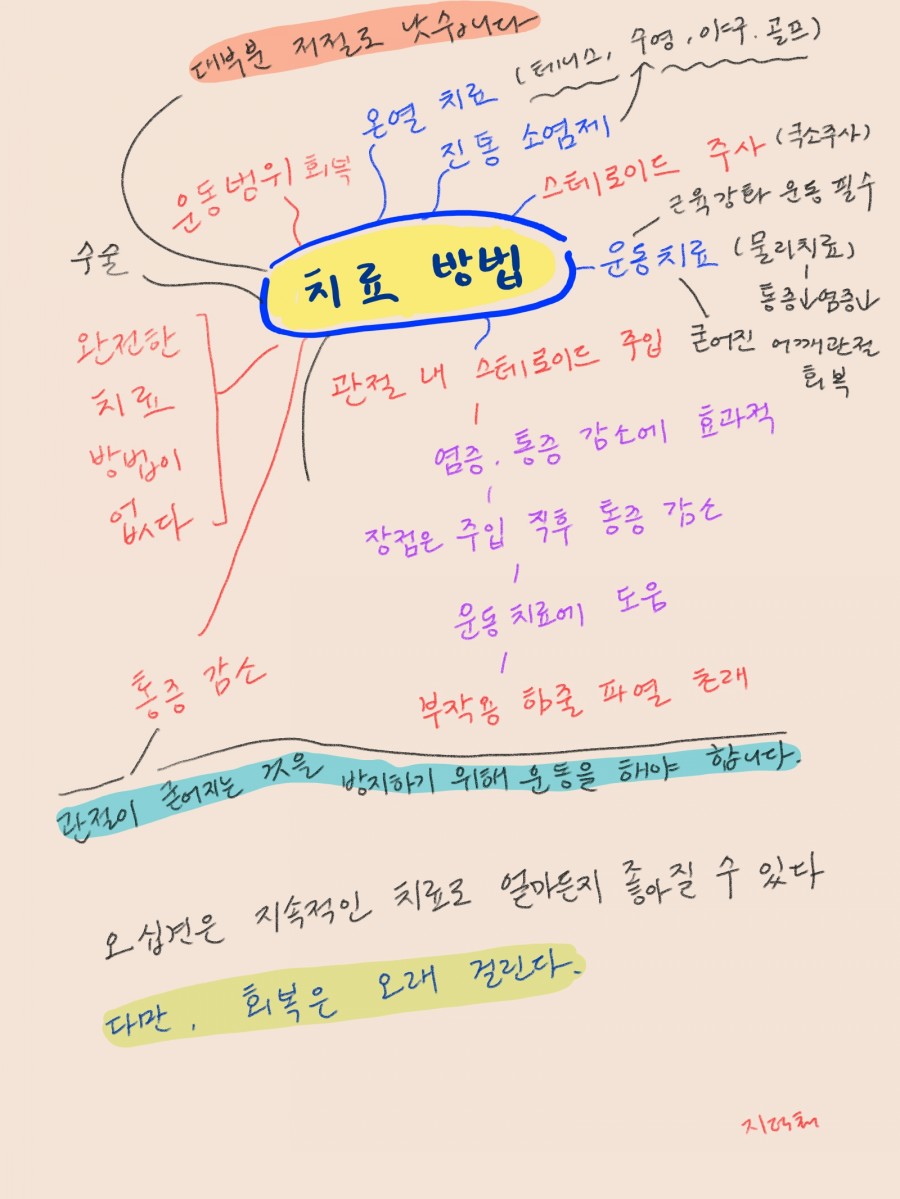 대부분 저절로 낫습니다
온열 치료 (테니스, 수영, 야구. 골프)
진통 소염제
운동범위 회복
스테로이드 주사 (국소주사)
근육강화 운동 필수
수술
치료 방법
운동치료 (물리치료)
통증↓염증↓
굳어진 어깨관절
회복
완전한
치료
방법이
없다
관절 내 스테로이드 주입
염증. 통증 감소에 효과적
장점은 주입 직후 통증 감소
운동치료에 도움
부작용 힘줄 파열 초래
통증 감소
관절이 굳어지는 것을 방지하기 위해 운동을 해야 합니다.
오십견은 지속적인 치료로 얼마든지 좋아질 수 있다
다만, 회복은 오래 걸린다.